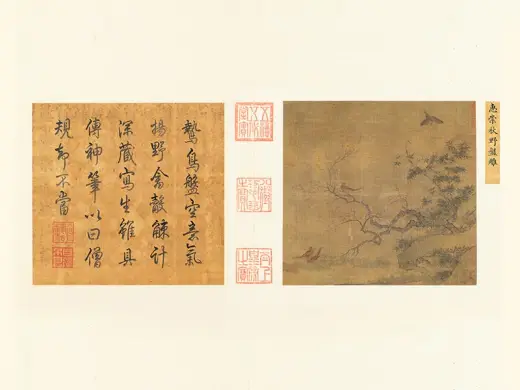 惠崇秋野盤雕
鷙鳥盤空意氣
揚野禽觳觫計
深藏寫生雖具
傳神筆以曰僧
規却不當